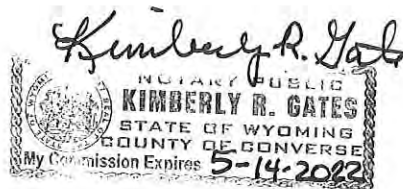 Kimberly R. Gates
NOTARY PUBLIC
KIMBERLY R. GATES
STATE OF WYOMING
COUNTY OF CONVERSE
My Commission Expires 5-14-2022